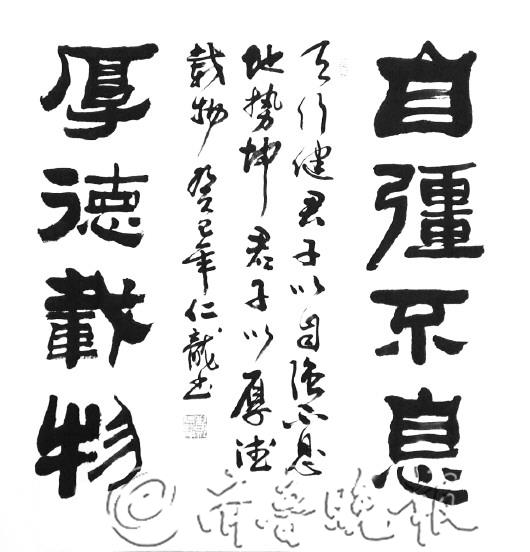 自彊不息
天行健君子以自强不息
地势坤君子以厚德
载物 癸巳年仁龍书
厚德載物
@齐鲁晚报